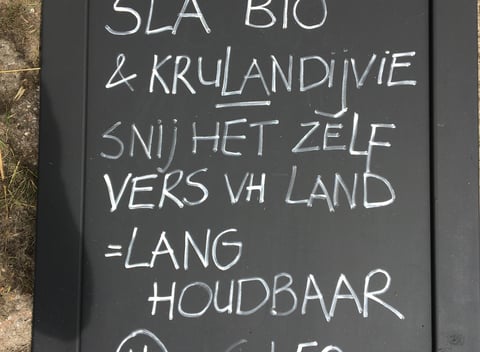 SLA BIO
& KRULANDIJVIE
SNIJ HET ZELF
VERS VH LAND
=LANG
HOUDBAAR